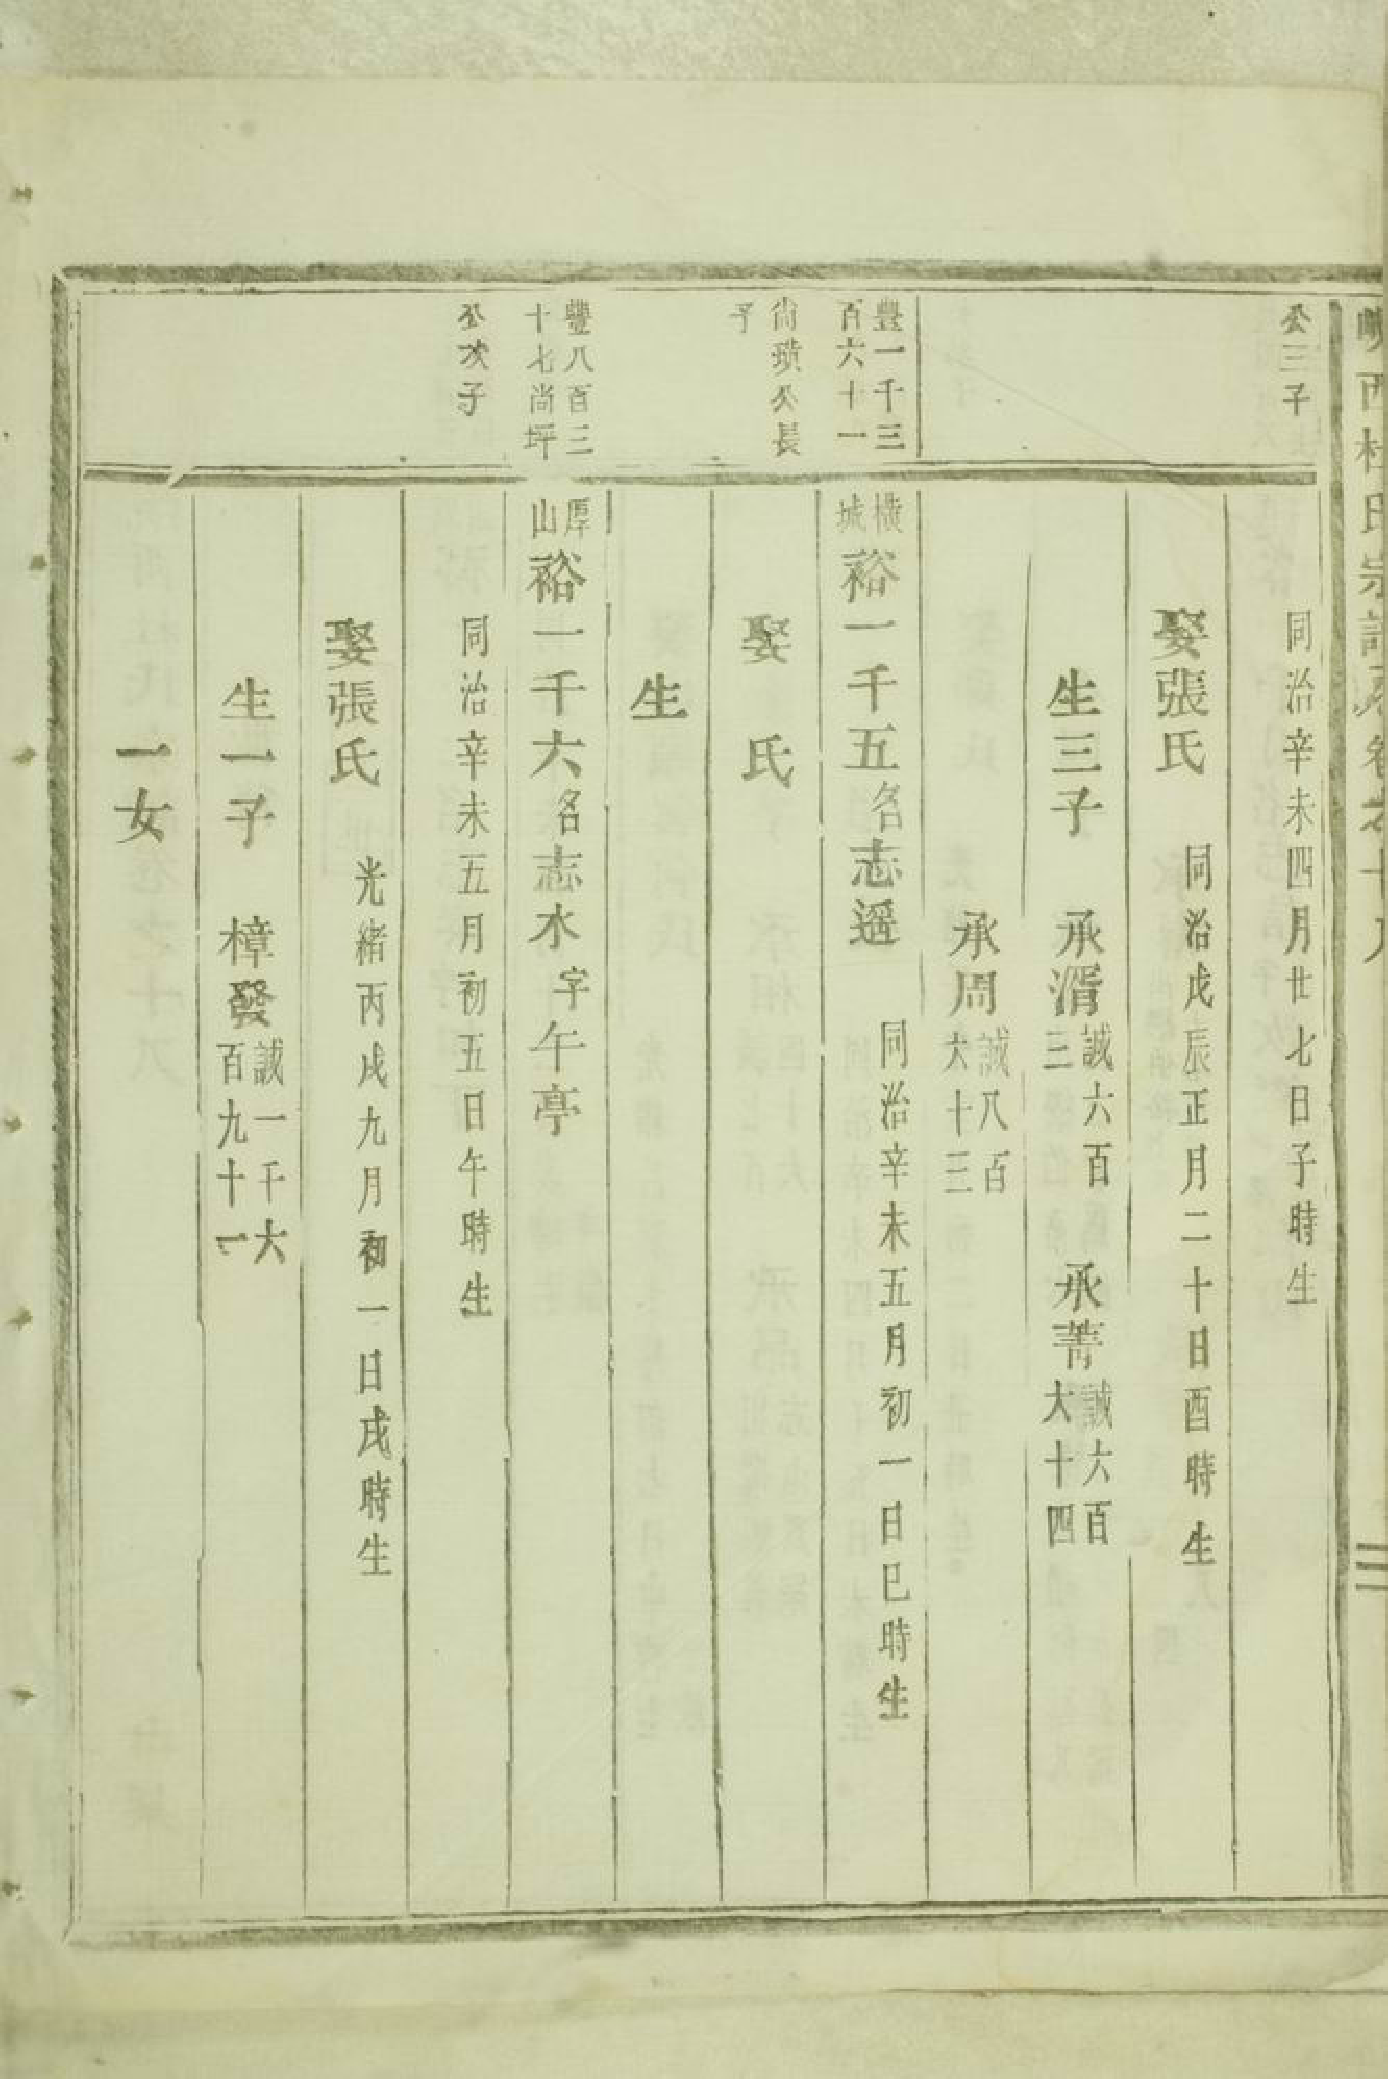 西杜氏宗譜卷之十八
公三子
同治辛未四月廿七日子時生
娶張氏 同治戊辰正月二十日酉時生
生三子 承湑 誠六百三 承菁 誠六百大十四
承周 誠八百大十三
豐一千三百六十一
橫城 裕一千五 名志遥 同治辛未五月初一日巳時生
尚璜公長子
娶 氏
生
豐八百三十七尚坪
厚山 裕一千六 名志水 字午亭
公次子
同治辛未五月初五日午時生
娶張氏 光緒丙戌九月初一日戌時生
生一子 樟發 誠一千六百九十一
一女